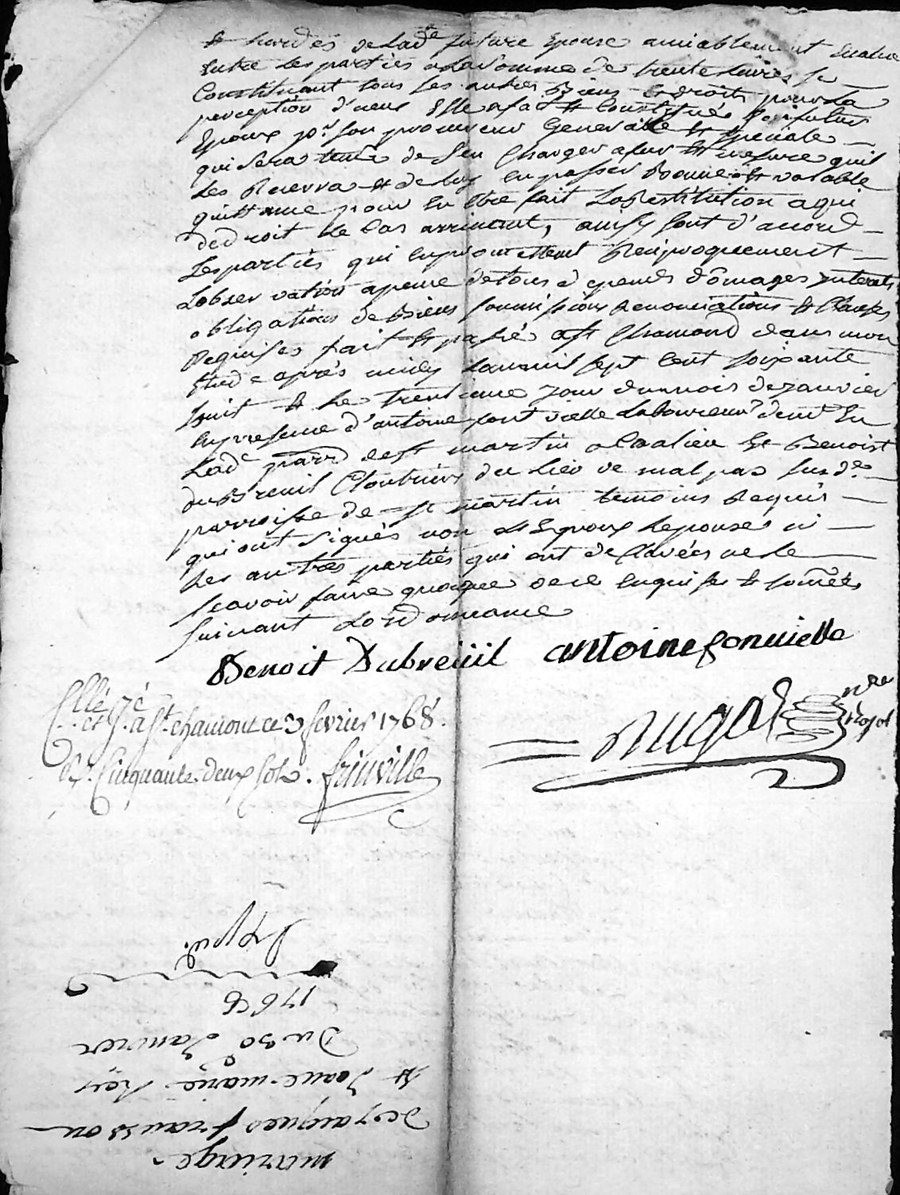 & hardes de lad.e future Epouse amiablement Evalué
Entre les parties a la somme de trente livres se
Constituant tous les autres Biens & droits pour la
perception d'iceux Elle a fait & Constitué
Epoux p.r son procureur Generalle & speciale
qui sera tenu de s'en Charger a fur & mesure quil
Les Recevra & de luy En passer Bonne & valable
quittance pour En Etre fait La Restitution a qui
de droit le Cas arrivant, ainsy sont d'accord
Les parties qui En promettent Réciproquement
Lobservation a peine de tous dépends domages Interets
obligations de Biens soumissions Renonciations & Clauses
Requises fait & passé a S.t Chamond dans mon
Etude aprés midy Lan mil sept Cent soixante
huit & le trentieme jour du mois de janvier
En presence d'antoine font vielle Laboureur dem.t En
Lad.e parr.e de S.t martin a Coalieu & Benoist
dubreuil Cloutier du Lieu de mal pas sus.de
parroisse de S.t martin temoins Requis
qui ont signés non & Epoux Lepouse ni
Les autres parties qui ont declarées ne le
scavoir faire quoique de ce Enquises & sommées
suivant Lordonnance
Benoit Dubreüil antoine fonuielle
nre
Royal
Cllé
et S. a St chamont ce 3 fevrier 1768.
R. Cinquante deux sols.
mariage
de jaques fraisson
& jeane marie
Du 30 Janvier
1768